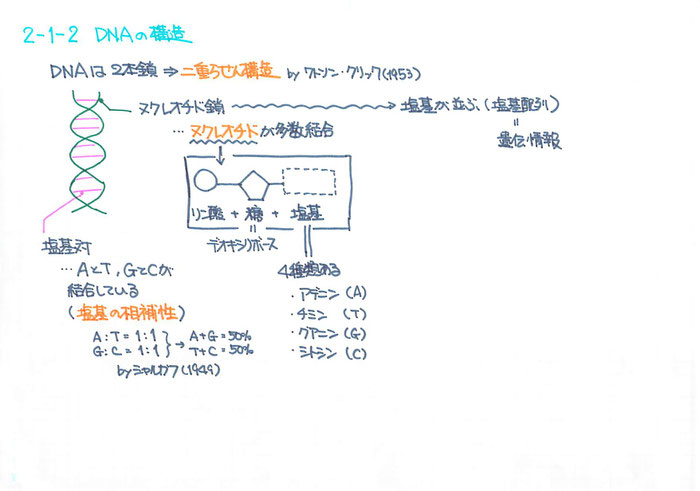 2-1-2 DNAの構造
DNAは2本鎖 ⇒ 二重らせん構造 by ワトソン・クリック(1953)
ヌクレオチド鎖 → 塩基が並ぶ(塩基配列)
… ヌクレオチドが多数結合
=
遺伝情報
リン酸 + 糖 + 塩基
=
デオキシリボース
4種類ある
・アデニン (A)
・チミン (T)
・グアニン (G)
・シトシン (C)
塩基対
… AとT, GとCが
結合している
(塩基の相補性)
A:T=1:1 } → A+G=50%
G:C=1:1 } T+C=50%
by シャルガフ(1949)